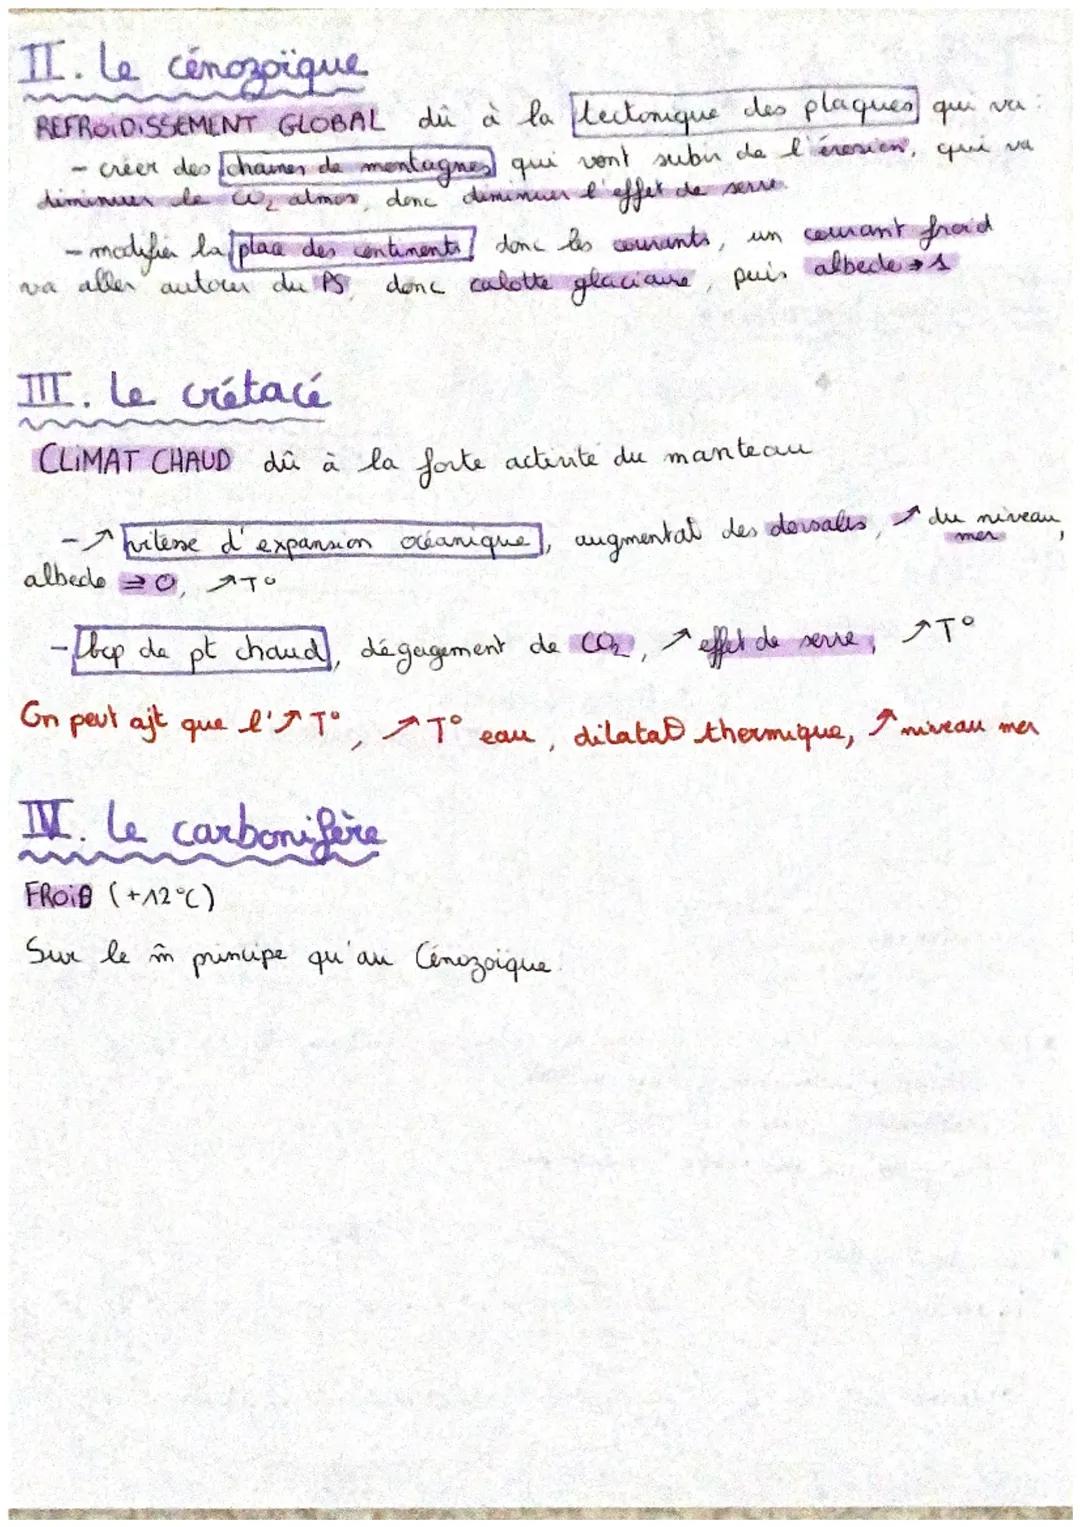 II. Le cénozoïque
REFROIDISSEMENT GLOBAL dû à la tectonique des plaques qui va :
- créer des chaines de montagnes qui vont subir de l'érosion, qui va
diminuer le CO₂ atmos, donc diminuer l'effet de serre.
- modifier la place des continents donc les courants, un courant froid
va aller autour du PS, donc calotte glaciaire, puis albedo → 1
III. Le crétacé
CLIMAT CHAUD dû à la forte activité du manteau
- ↗ vitesse d'expansion océanique, augmentat° des dorsales, ↗ du niveau mer,
albedo ⇒ 0, ↗ T°
- bcp de pt chaud, dégagement de CO₂, ↗ effet de serre, ↗ T°
On peut ajt que l'↗ T°, ↗ T° eau, dilatat° thermique, ↗ niveau mer
IV. Le carbonifère
FROID (+12°C)
Sur le m̂ principe qu'au Cénozoïque.